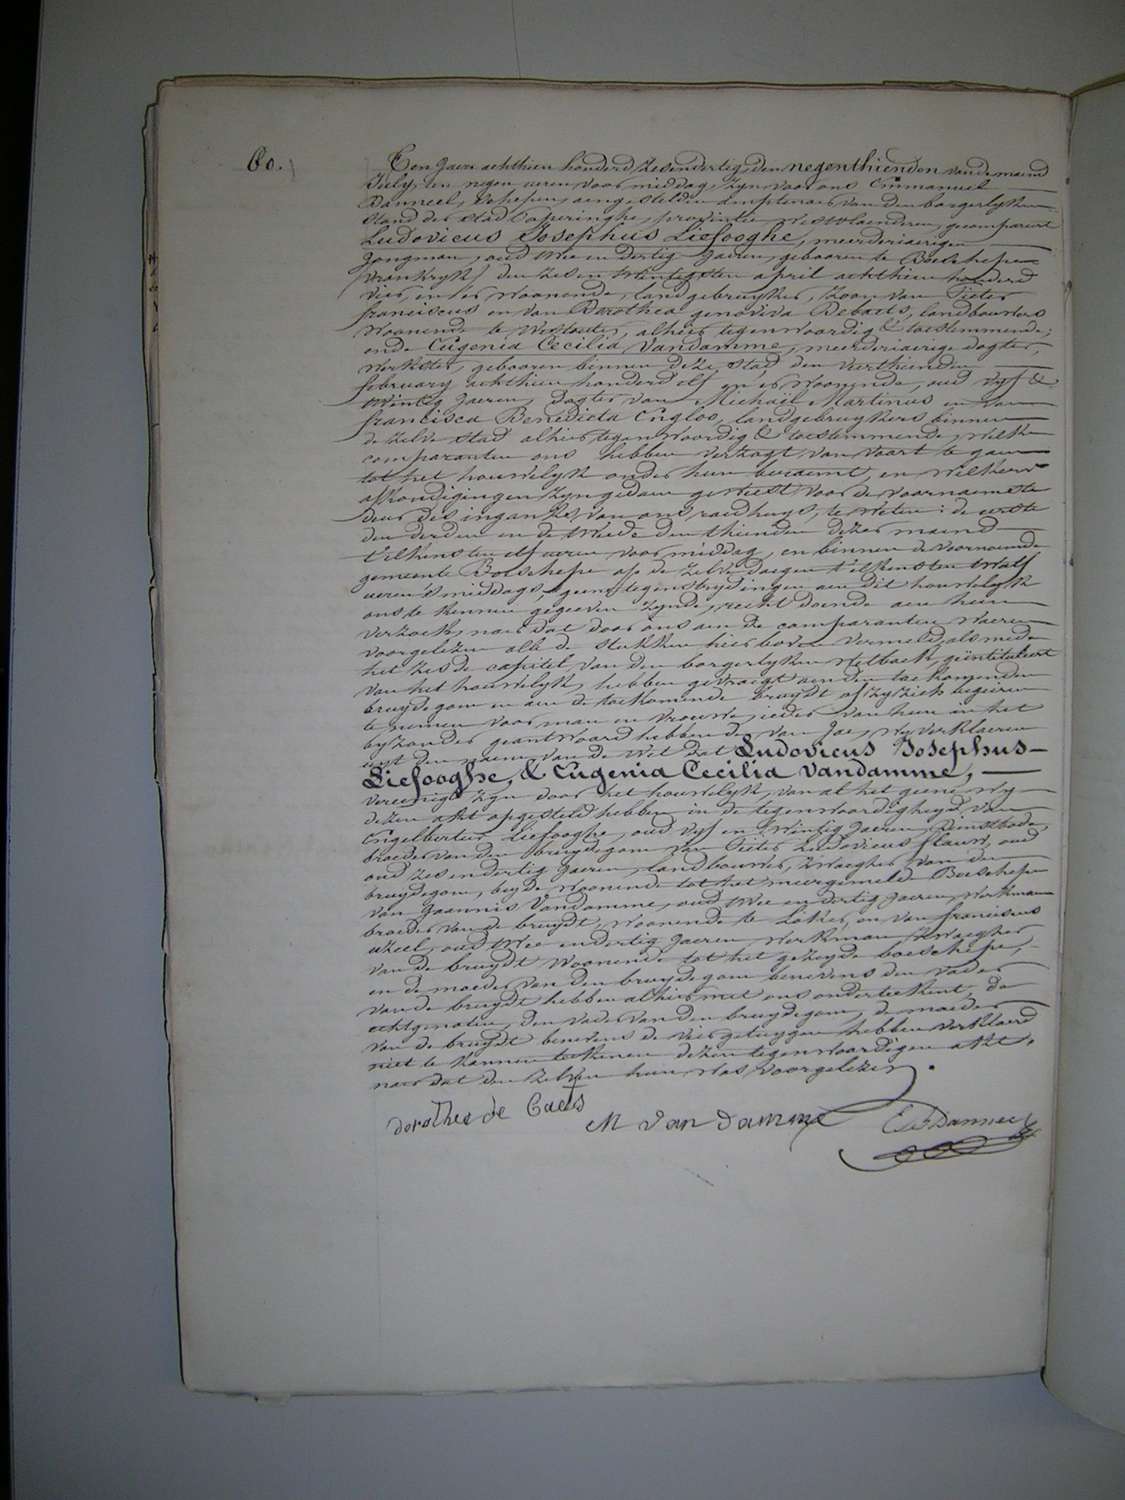 60.
Een jaer achthien honderd zesendertig, den negenthienden van de maend
July, ten negen ueren voor middag, zyn voor ons Emmanuel
Danneel, schepen, aengestelden amptenaer van den borgerlyken
stand der stad Poperinghe, provintie Westvlaenderen, gecompareert
Ludovicus Josephus Liefooghe, meerderjaerigen
jongman, oud twee en dertig jaeren, gebooren te Boeschepe
(vrankryk) den zes en twintigsten april achthien honderd
vier, en er woonende, landgebruyker, zoon van Pieter
franciscus en van Dorothea genoviva Debaets, landbouwers
woonende te Westouter, alhier tegenwoordig & toestemmende;
ende Eugenia Cecilia Vandamme, meerderjaerige dogter,
werkster, gebooren binnen deze stad den veerthienden
february achthien honderd elf en er woonende, oud vyf &
twintig jaeren, dogter van Michaël Martinus en van
francisca Benedicta Cugloo, landgebruykers binnen
de zelve stad alhier tegenwoordig & toestemmende, welke
comparanten ons hebben verzogt van voort te gaen
tot het houwelyk onder hun beraemt, en welkers
afkondigingen zyn gedaen geweest voor de voornaemste
deur des ingangs van ons raedhuys, te weten: de eerste
den derden en de tweede den thienden dezer maend
t'elkens ten elf ueren voor middag, en binnen de voornoemde
gemeente Boeschepe op de zelve daegen t'elkens ten twalf
ueren 's middags, geene tegenstrydingen aen dit houwelyk
ons te kennen gegeven zynde, recht doende aen hun
verzoek, naer dat door ons aen de comparanten waeren
voorgelezen alle de stukken hier boven vermeld, als mede
het zesde capitel van den borgerlyken wetboek, geïntituleert
van het houwelyk, hebben gevraegt aen den toekomenden
bruydegom en aen de toekomende bruydt of zy zich begeiren
te nemen voor man en vrouwe, ieder van hun in het
byzonder geantwoord hebbende van Jae, wy verklaeren
uyt den naem van de wet dat Ludovicus Josephus
Liefooghe, & Eugenia Cecilia Vandamme,
vereenigt zyn door het houwelyk, van al het geene wy
dezen akt opgesteld hebben in de tegenwoordigheyd van
Engelbertus Liefooghe, oud vyf en twintig jaeren, dienstbode,
broeder van den bruydegom, van Pieter Ludovicus flauw, oud
oud zes en dertig jaeren, landbouwer, zwaegher van den
bruydegom, beyde woonende tot het meergemeld Boeschepe
van Joannis Vandamme, oud twee en dertig jaeren, werkman
broeder van de bruydt, woonende te Loker, en van franciscus
oud twee en dertig jaeren, werkman, zwaegher
van de bruydt woonende tot het gezeyde boeschepe,
en de moeder van den bruydegom benevens den vader
van de bruydt hebben alhier met ons onderteekent, de
echtgenoten, den vader van den bruydegom, de moeder
van de bruydt benevens de vier getuygen hebben verklaerd
niet te kunnen teekenen dezen tegenwoordigen akt,
naer dat den zelven hun was voorgelezen.
dorothea de Baets M van damme E Danneel